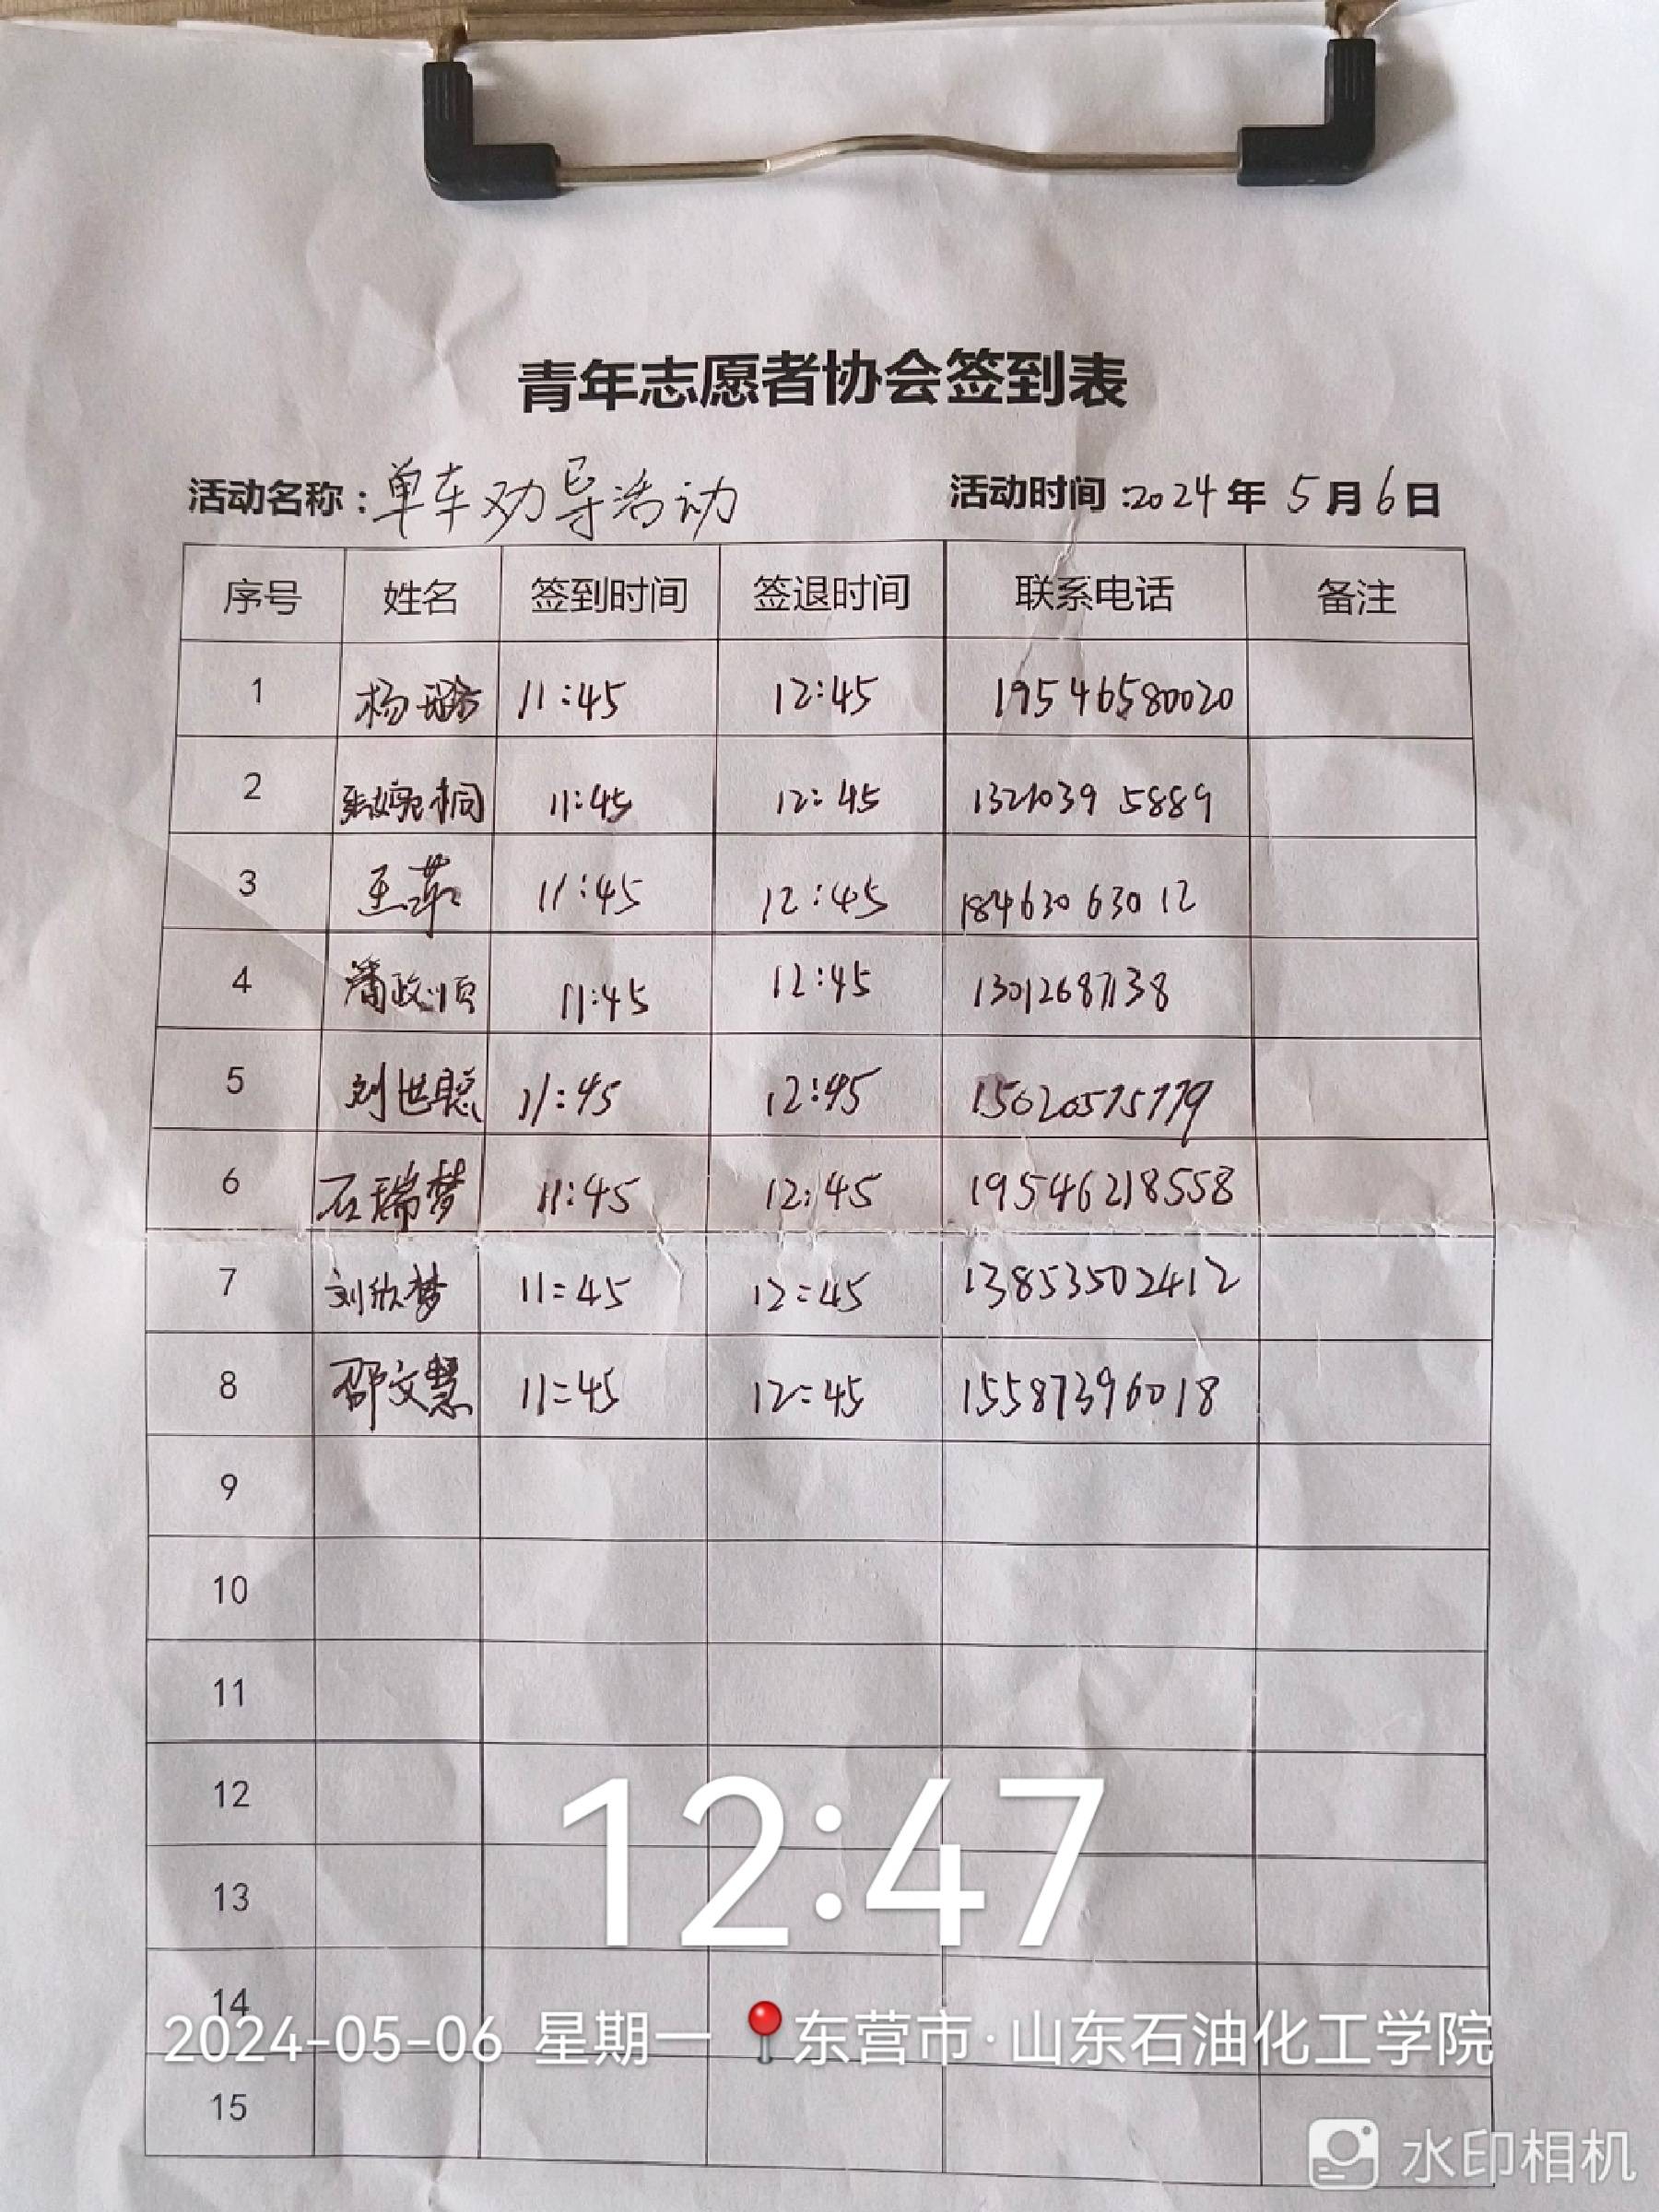 青年志愿者协会签到表
活动名称：单车劝导活动 活动时间：2024年 5月6日
序号 姓名 签到时间 签退时间 联系电话 备注
1 杨 11:45 12:45 19546580020
2 11:45 12:45 13210395889
3 王 11:45 12:45 18463063012
4 潘政顺 11:45 12:45 13012687138
5 刘世聪 11:45 12:45 15020575779
6 石瑞梦 11:45 12:45 19546218558
7 刘欣梦 11:45 12:45 13853502412
8 邵文慧 11:45 12:45 15587396018
9
10
11
12
12:47
13
14
2024-05-06 星期一 东营市·山东石油化工学院
15
水印相机